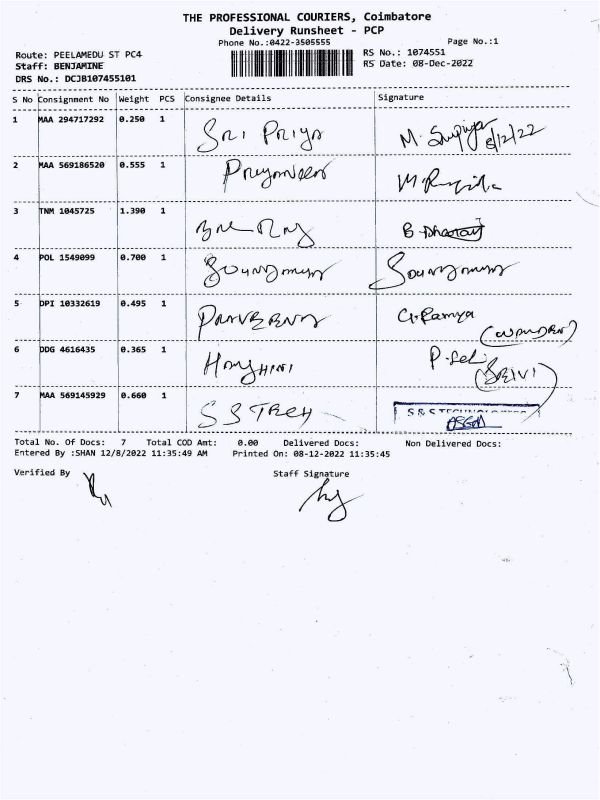 THE PROFESSIONAL COURIERS, Coimbatore
Delivery Runsheet - PCP
Phone No.:0422-3505555 Page No.:1
Route: PEELAMEDU ST PC4 RS No.: 1074551
Staff: BENJAMINE RS Date: 08-Dec-2022
DRS No.: DCJB107455101
S No Consignment No Weight PCS Consignee Details Signature
1 MAA 294717292 0.250 1 SRI PRIYA M. 8/12/22
2 MAA 569186520 0.555 1
3 TNM 1045725 1.390 1 B
4 POL 1549099 0.700 1
5 DPI 10332619 0.495 1 G. Ramya
6 DDG 4616435 0.365 1
7 MAA 569145929 0.660 1 S S TECH S & S TECHNOLOGIES
Total No. Of Docs: 7 Total COD Amt: 0.00 Delivered Docs: Non Delivered Docs:
Entered By :SHAN 12/8/2022 11:35:49 AM Printed On: 08-12-2022 11:35:45
Verified By Staff Signature